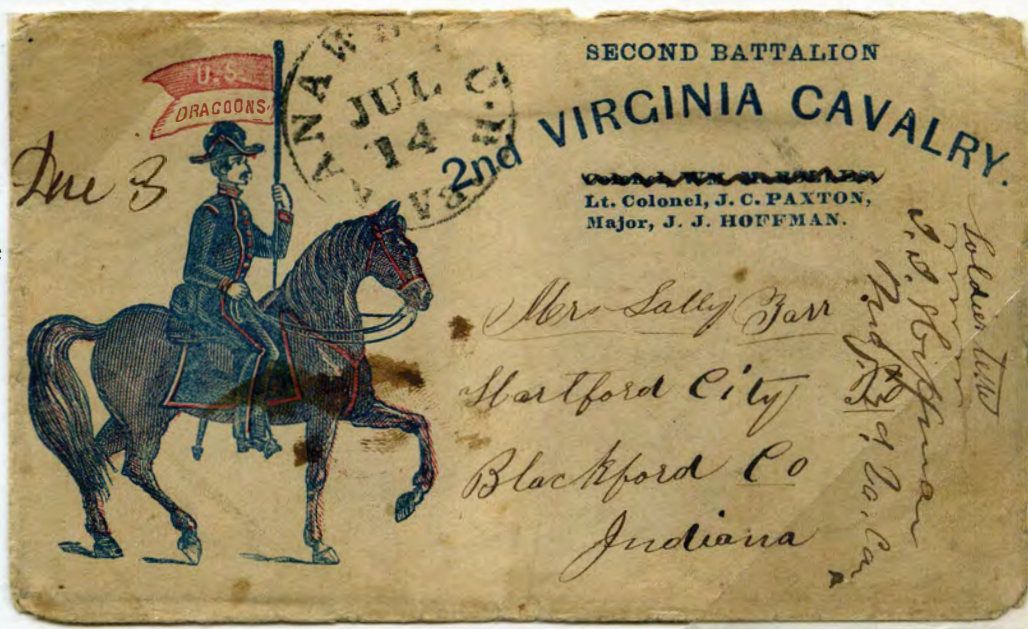 U.S.
DRAGOONS.
JUL
14
VA.
Due 3
SECOND BATTALION
2nd VIRGINIA CAVALRY.
Lt. Colonel, J. C. PAXTON,
Major, J. J. HOFFMAN.
Mrs Sally Farr
Hartford City
Blackford Co
Indiana
J. J. Hoffman
2d Va, Cav